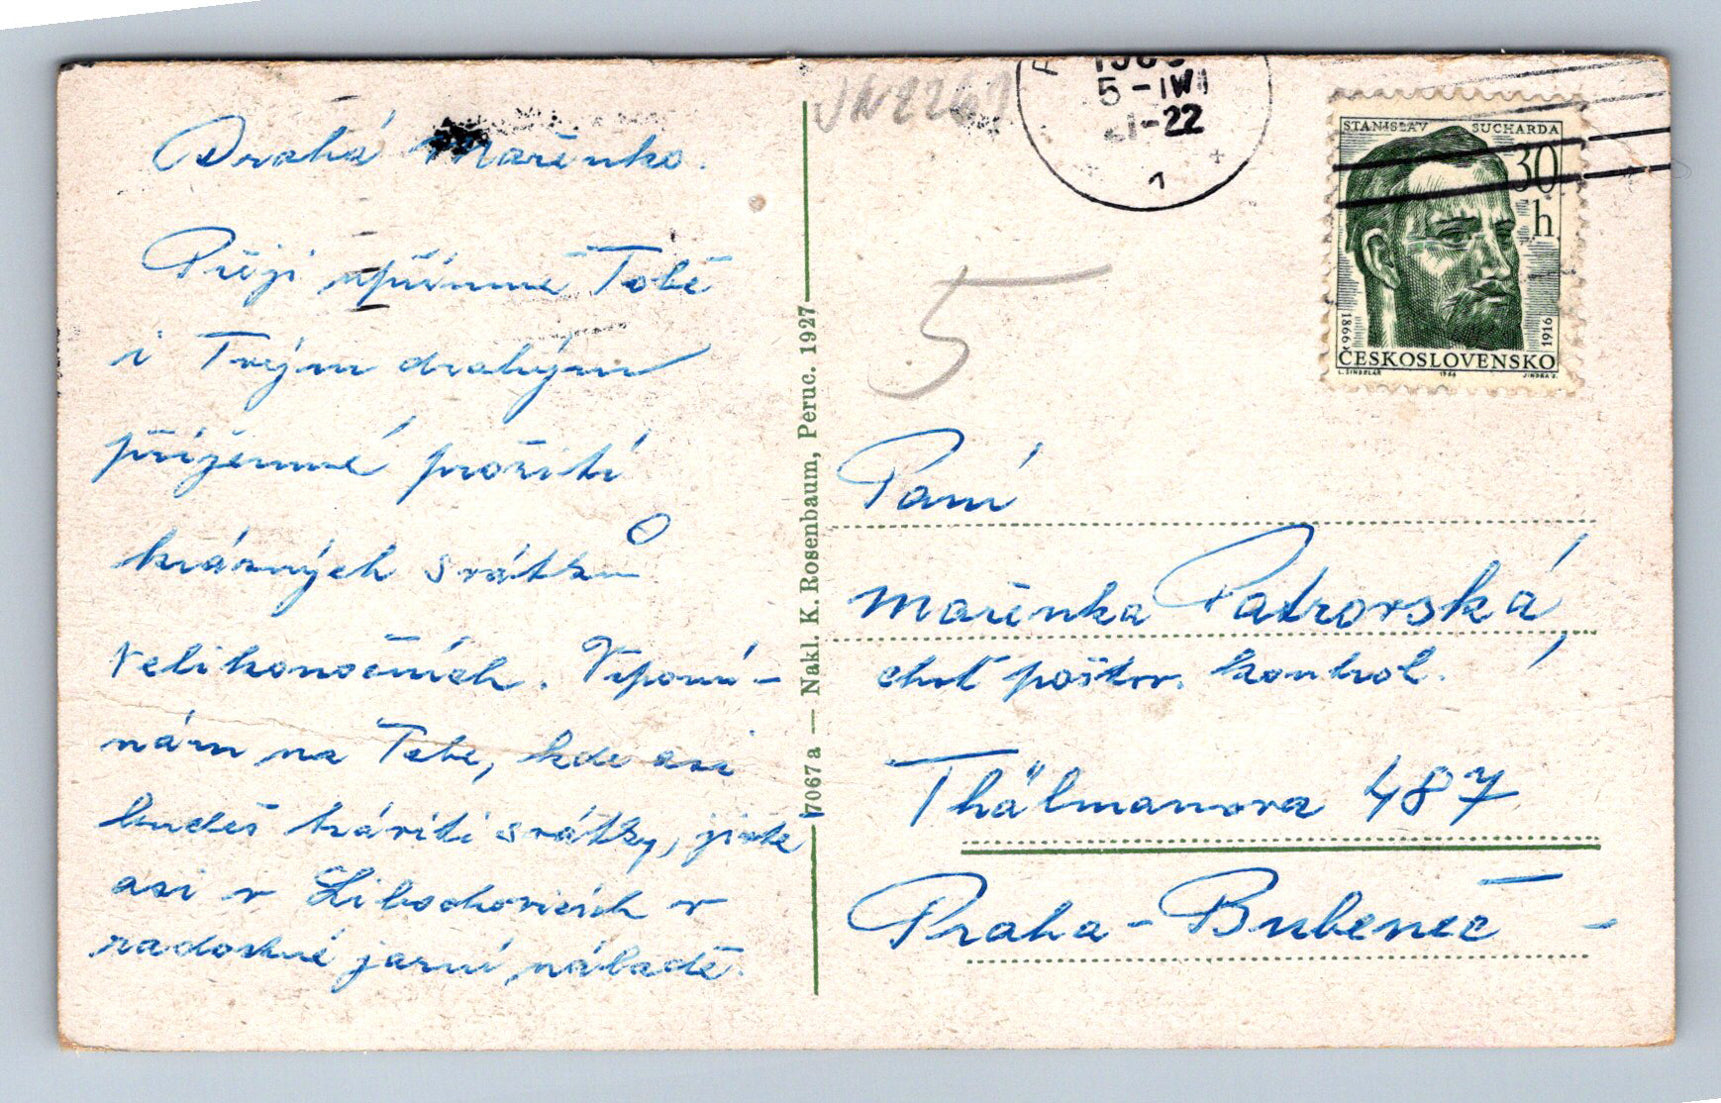 Drahá Mařenko.
Přeji upřímně Tobě
i Tvým drahým
příjemné prožití
krásných svátků
velikonočních. Vzpomí-
nám na Tebe, kde asi
budeš tráviti svátky, jistě
asi v Libochovicích v
radostné jarní náladě.
7067a — Nakl. K. Rosenbaum, Peruc. 1927
5 -IV
21-22
1
STANISLAV SUCHARDA
30
h
1866
1916
ČESKOSLOVENSKO
L. ŠINDELÁŘ 1966 JINDRA S.
5
Paní
Mařenka Patrovská,
choť poštov. kontrol.
Thälmanova 487
Praha-Bubeneč -